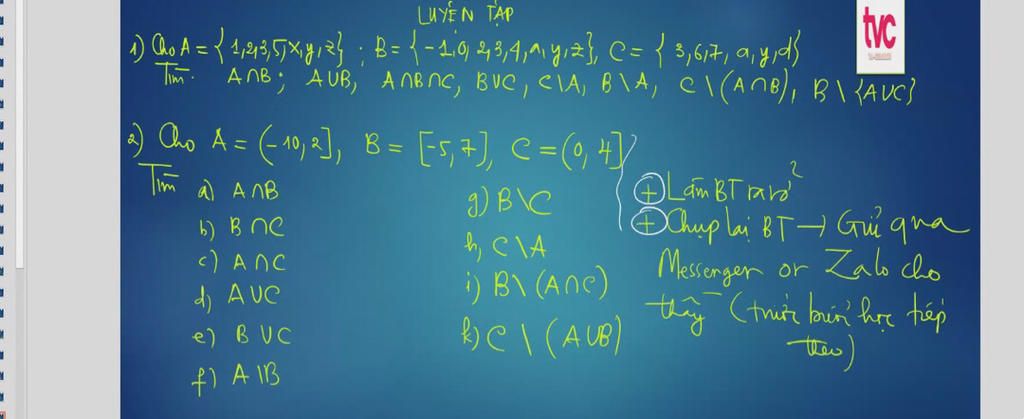 LUYỆN TẬP
tvc
1) Cho A = {1,2,3,5,x,y,z} ; B = {-1,0,2,3,4,a,y,z}, C = {3,6,7,a,y,d}
Tìm: A∩B; A∪B, A∩B∩C, B∪C, C\A, B\A, C\(A∩B), B\{A∪C}
2) Cho A = (-10,2], B = [-5,7], C = (0,4]
Tìm a) A∩B
b) B∩C
c) A∩C
d) A∪C
e) B∪C
f) A\B
g) B\C
h, C\A
i) B\(A∩C)
k) C\(A∪B)
+ Làm BT ra vở
+ Chụp lại BT → Gửi qua
Messenger or Zalo cho
thầy (trước buổi học tiếp
theo)